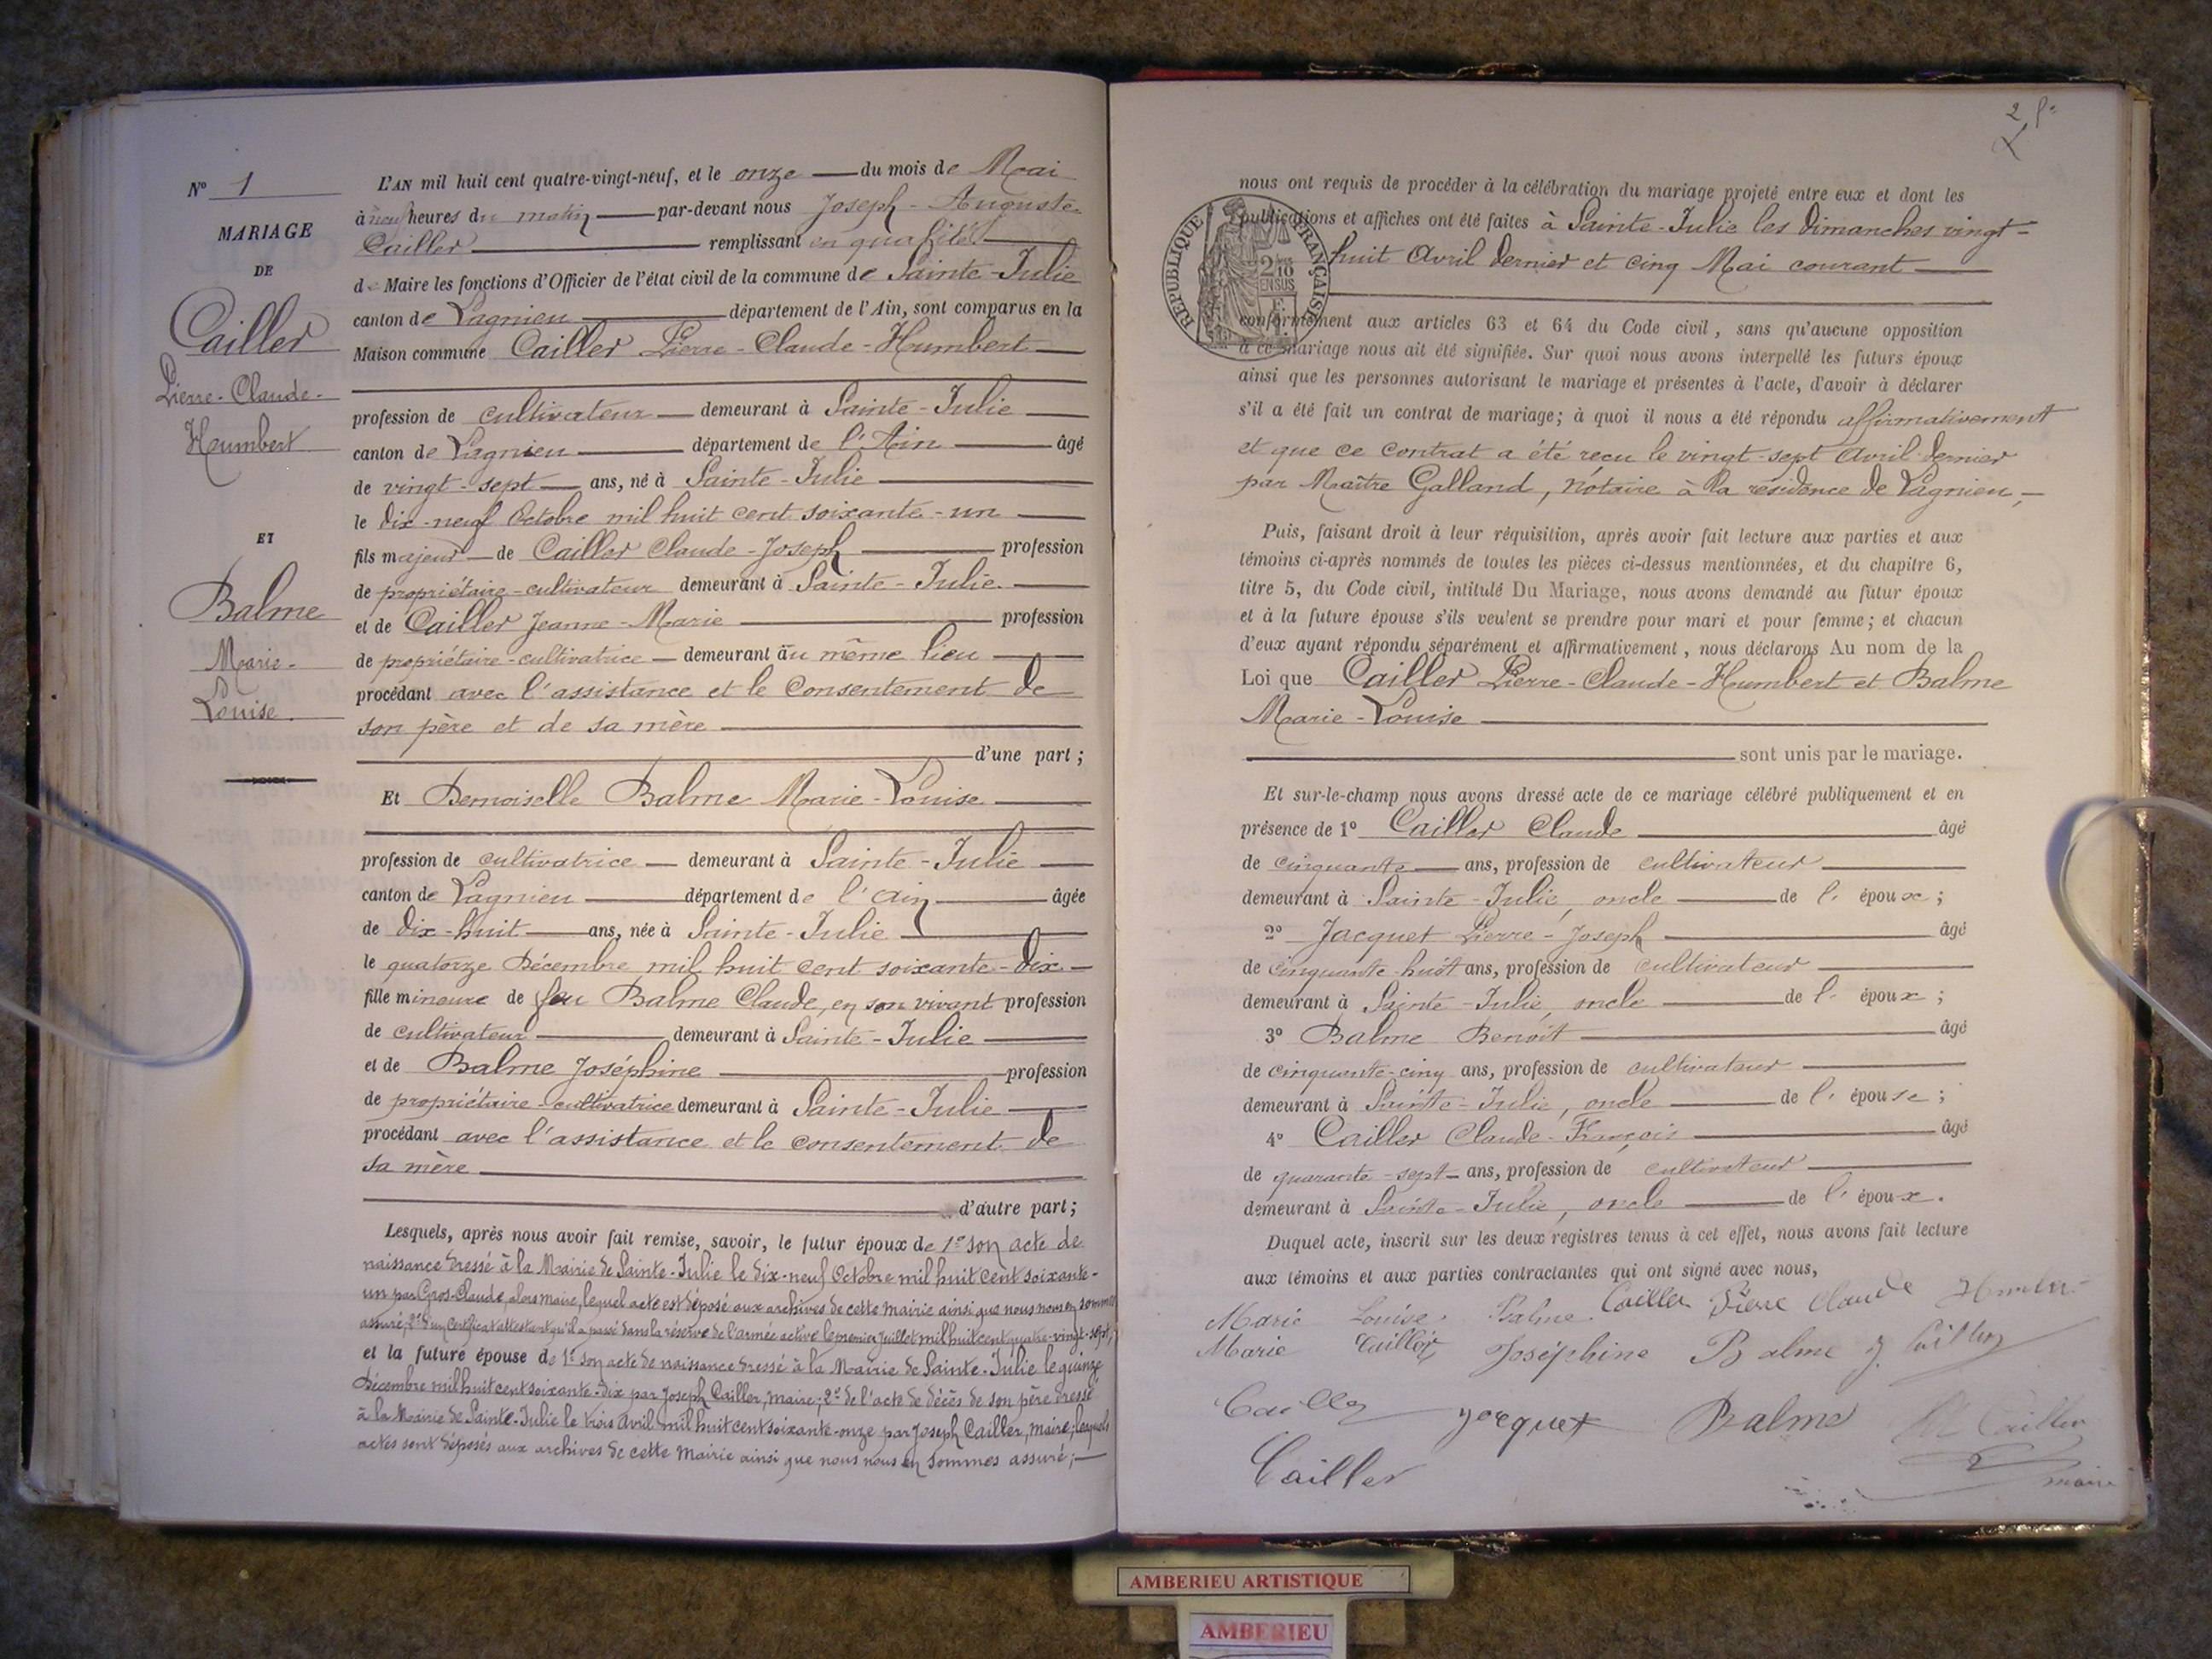 N° 1
MARIAGE
DE
Cailler
Pierre-Claude-
Humbert
ET
Balme
Marie-
Louise
L'AN mil huit cent quatre-vingt-neuf, et le onze du mois de Mai
à neuf heures du matin par-devant nous Joseph-Auguste
Cailler remplissant en qualité
de Maire les fonctions d'Officier de l'état civil de la commune de Sainte-Julie
canton de Lagnieu département de l'Ain, sont comparus en la
Maison commune Cailler Pierre-Claude-Humbert
profession de cultivateur demeurant à Sainte-Julie
canton de Lagnieu département de l'Ain âgé
de vingt-sept ans, né à Sainte-Julie
le dix-neuf Octobre mil huit cent soixante-un
fils majeur de Cailler Claude-Joseph profession
de propriétaire-cultivateur demeurant à Sainte-Julie
et de Cailler Jeanne-Marie profession
de propriétaire-cultivatrice demeurant au même lieu
procédant avec l'assistance et le Consentement de
son père et de sa mère
d'une part ;
Et Demoiselle Balme Marie-Louise
profession de cultivatrice demeurant à Sainte-Julie
canton de Lagnieu département de l'Ain âgée
de dix-huit ans, née à Sainte-Julie
le quatorze Décembre mil huit cent soixante-dix
fille mineure de feu Balme Claude, en son vivant profession
de cultivateur demeurant à Sainte-Julie
et de Balme Joséphine profession
de propriétaire-cultivatrice demeurant à Sainte-Julie
procédant avec l'assistance et le consentement de
sa mère
d'autre part ;
Lesquels, après nous avoir fait remise, savoir, le futur époux de 1° son acte de
naissance dressé à la Mairie de Sainte-Julie le dix-neuf Octobre mil huit cent soixante-
un par Gros-Claude, alors maire, lequel acte est déposé aux archives de cette mairie ainsi que nous nous en sommes
assuré, 2° d'un certificat attestant qu'il a passé dans la réserve de l'armée active le premier Juillet mil huit cent quatre-vingt-sept,
et la future épouse de 1° son acte de naissance dressé à la Mairie de Sainte-Julie le quinze
Décembre mil huit cent soixante-dix par Joseph Cailler, maire ; 2° de l'acte de décès de son père dressé
à la Mairie de Sainte-Julie le trois avril mil huit cent soixante-onze par Joseph Cailler, maire ; lesquels
actes sont déposés aux archives de cette Mairie ainsi que nous nous en sommes assuré ;
2
RÉPUBLIQUE FRANÇAISE
nous ont requis de procéder à la célébration du mariage projeté entre eux et dont les
publications et affiches ont été faites à Sainte-Julie les dimanches vingt-
huit Avril dernier et cinq Mai courant
conformément aux articles 63 et 64 du Code civil, sans qu'aucune opposition
à ce mariage nous ait été signifiée. Sur quoi nous avons interpellé les futurs époux
ainsi que les personnes autorisant le mariage et présentes à l'acte, d'avoir à déclarer
s'il a été fait un contrat de mariage ; à quoi il nous a été répondu affirmativement
et que ce contrat a été reçu le vingt-sept Avril dernier
par Maître Galland, Notaire à la résidence de Lagnieu,
Puis, faisant droit à leur réquisition, après avoir fait lecture aux parties et aux
témoins ci-après nommés de toutes les pièces ci-dessus mentionnées, et du chapitre 6,
titre 5, du Code civil, intitulé Du Mariage, nous avons demandé au futur époux
et à la future épouse s'ils veulent se prendre pour mari et pour femme ; et chacun
d'eux ayant répondu séparément et affirmativement, nous déclarons Au nom de la
Loi que Cailler Pierre-Claude-Humbert et Balme
Marie-Louise
sont unis par le mariage.
Et sur-le-champ nous avons dressé acte de ce mariage célébré publiquement et en
présence de 1° Cailler Claude âgé
de cinquante ans, profession de cultivateur
demeurant à Sainte-Julie, oncle de l' époux ;
2° Jacquet Pierre-Joseph âgé
de cinquante-huit ans, profession de cultivateur
demeurant à Sainte-Julie, oncle de l' époux ;
3° Balme Benoît âgé
de cinquante-cinq ans, profession de cultivateur
demeurant à Sainte-Julie, oncle de l' épouse ;
4° Cailler Claude-François âgé
de quarante-sept ans, profession de cultivateur
demeurant à Sainte-Julie, oncle de l' époux.
Duquel acte, inscrit sur les deux registres tenus à cet effet, nous avons fait lecture
aux témoins et aux parties contractantes qui ont signé avec nous,
Marie Louise Balme Cailler Pierre Claude Humbert
Marie Cailler Joséphine Balme J Cailler
Cailler Jacquet Balme Cailler
Cailler maire
AMBERIEU ARTISTIQUE
AMBERIEU